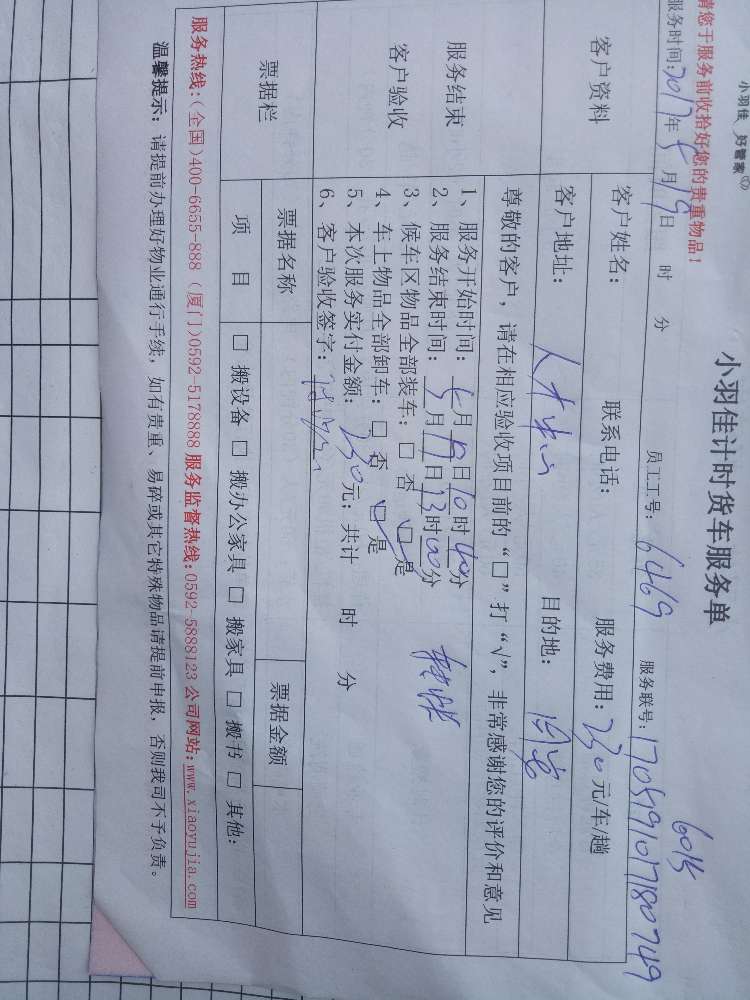 小羽佳 好管家
小羽佳计时货车服务单
601步
请您于服务前收拾好您的贵重物品！
服务时间：2017年5月19日 时 分 员工工号：6469 服务联号：17051910780749
客户资料
客户姓名： 联系电话： 服务费用：230元/车/趟
客户地址： 目的地：
尊敬的客户，请在相应验收项目前的“□”打“√”，非常感谢您的评价和意见
服务结束
客户验收
1、服务开始时间：5月19日10时40分
2、服务结束时间：5月19日13时00分
3、候车区物品全部装车：□ 否 □ 是
4、车上物品全部卸车：□ 否 □ 是
5、本次服务实付金额：230元；共计 时 分
6、客户验收签字：
票据栏
票据名称 票据金额
项 目 □ 搬设备 □ 搬办公家具 □ 搬家具 □ 搬书 □ 其他：
服务热线：(全国)400-6655-888 (厦门)0592-5178888 服务监督热线：0592-5888123 公司网站：www.xiaoyujia.com
温馨提示：请提前办理好物业通行手续，如有贵重、易碎或其它特殊物品请提前申报，否则我司不予负责。